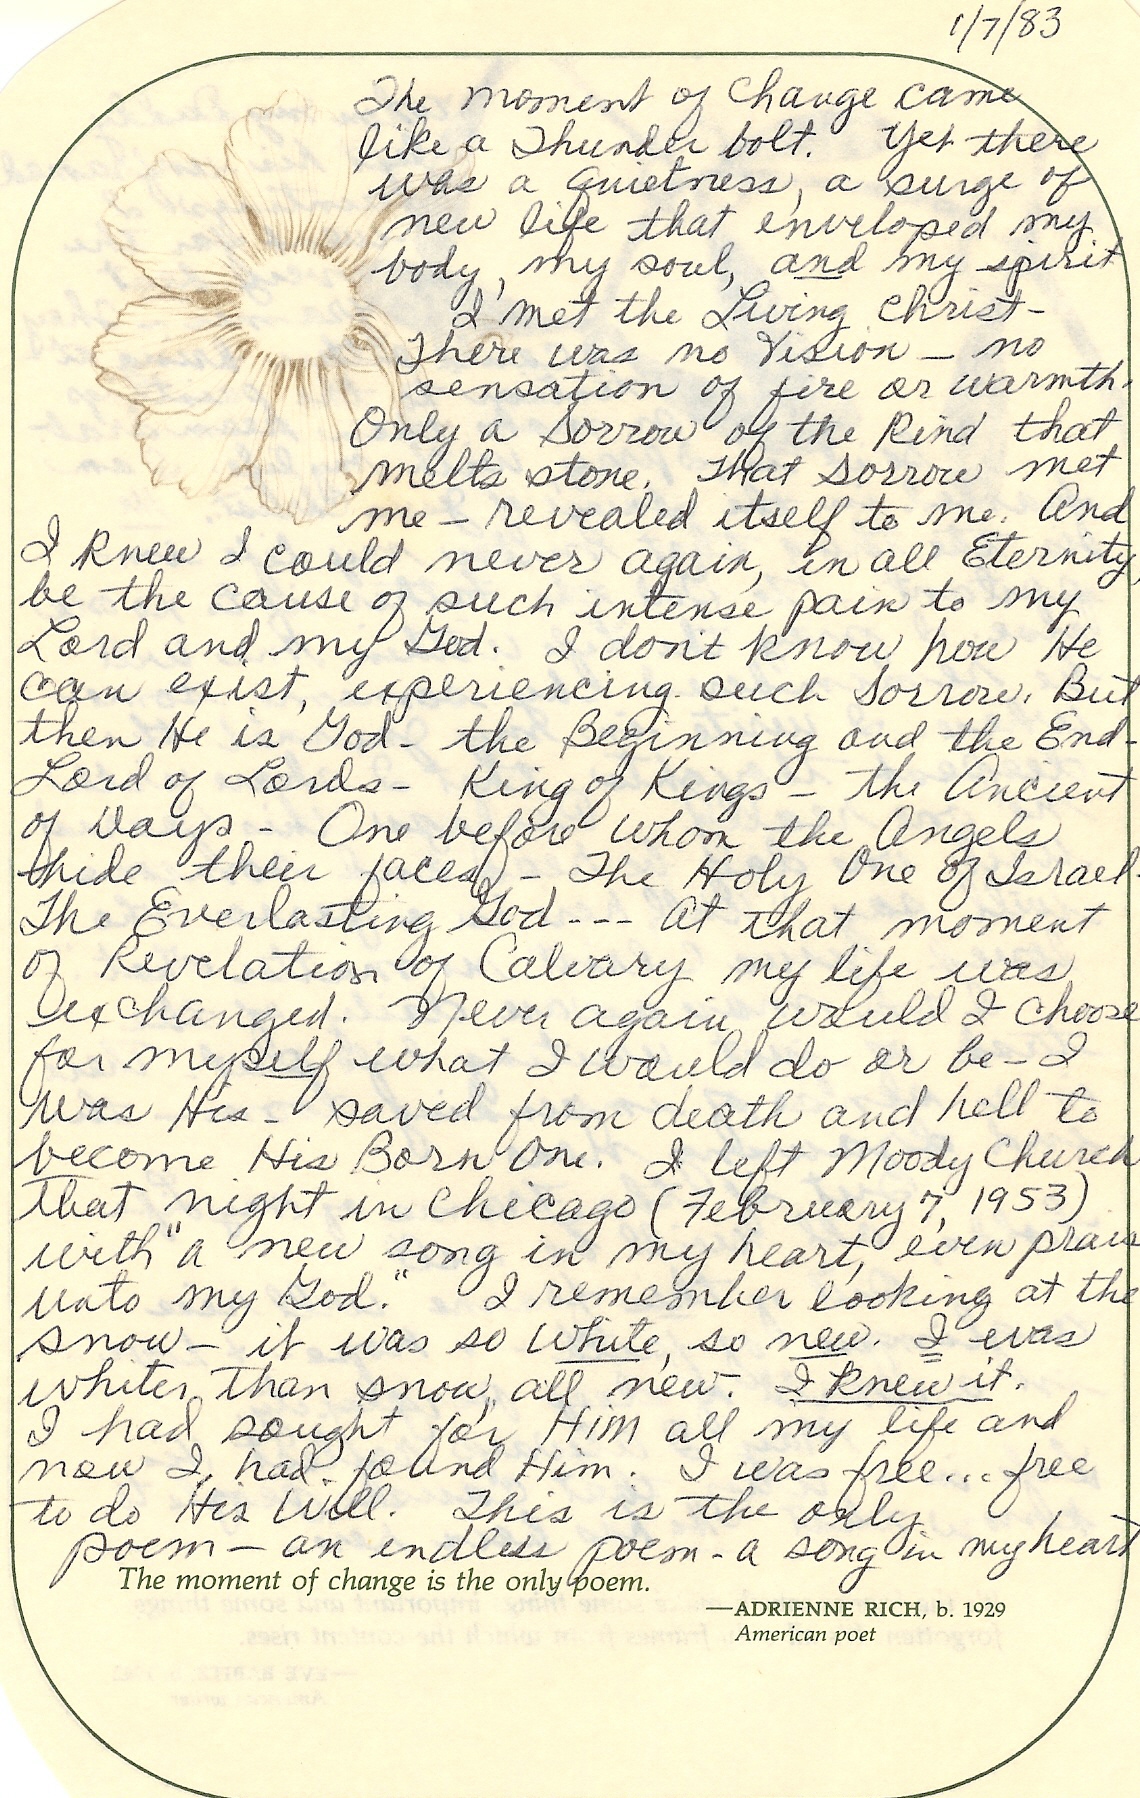 1/7/83
The moment of Change came
like a Thunder bolt. Yet there
was a Quietness, a surge of
new life that enveloped my
body, my soul, and my spirit
I met the Living Christ -
There was no Vision - no
sensation of fire or warmth.
Only a Sorrow of the Kind that
melts stone. That Sorrow met
me - revealed itself to me. And
I knew I could never again, in all Eternity,
be the cause of such intense pain to my
Lord and my God. I don't know how He
can exist, experiencing such Sorrow. But
then He is God - the Beginning and the End -
Lord of Lords - King of Kings - the Ancient
of Days - One before whom the Angels
hide their faces - The Holy One of Israel -
The Everlasting God --- At that moment
of Revelation of Calvary my life was
exchanged. Never again would I choose
for myself what I would do or be - I
was His - saved from death and hell to
become His Born One. I left Moody Church
that night in Chicago (February 7, 1953)
with "a new song in my heart, even prais
unto my God." I remember looking at the
snow - it was so white, so new. I was
whiter than snow, all new. I knew it.
I had sought for Him all my life and
now I had found Him. I was free... free
to do His Will. This is the only
poem - an endless poem - a song in my heart
The moment of change is the only poem.
—ADRIENNE RICH, b. 1929
American poet